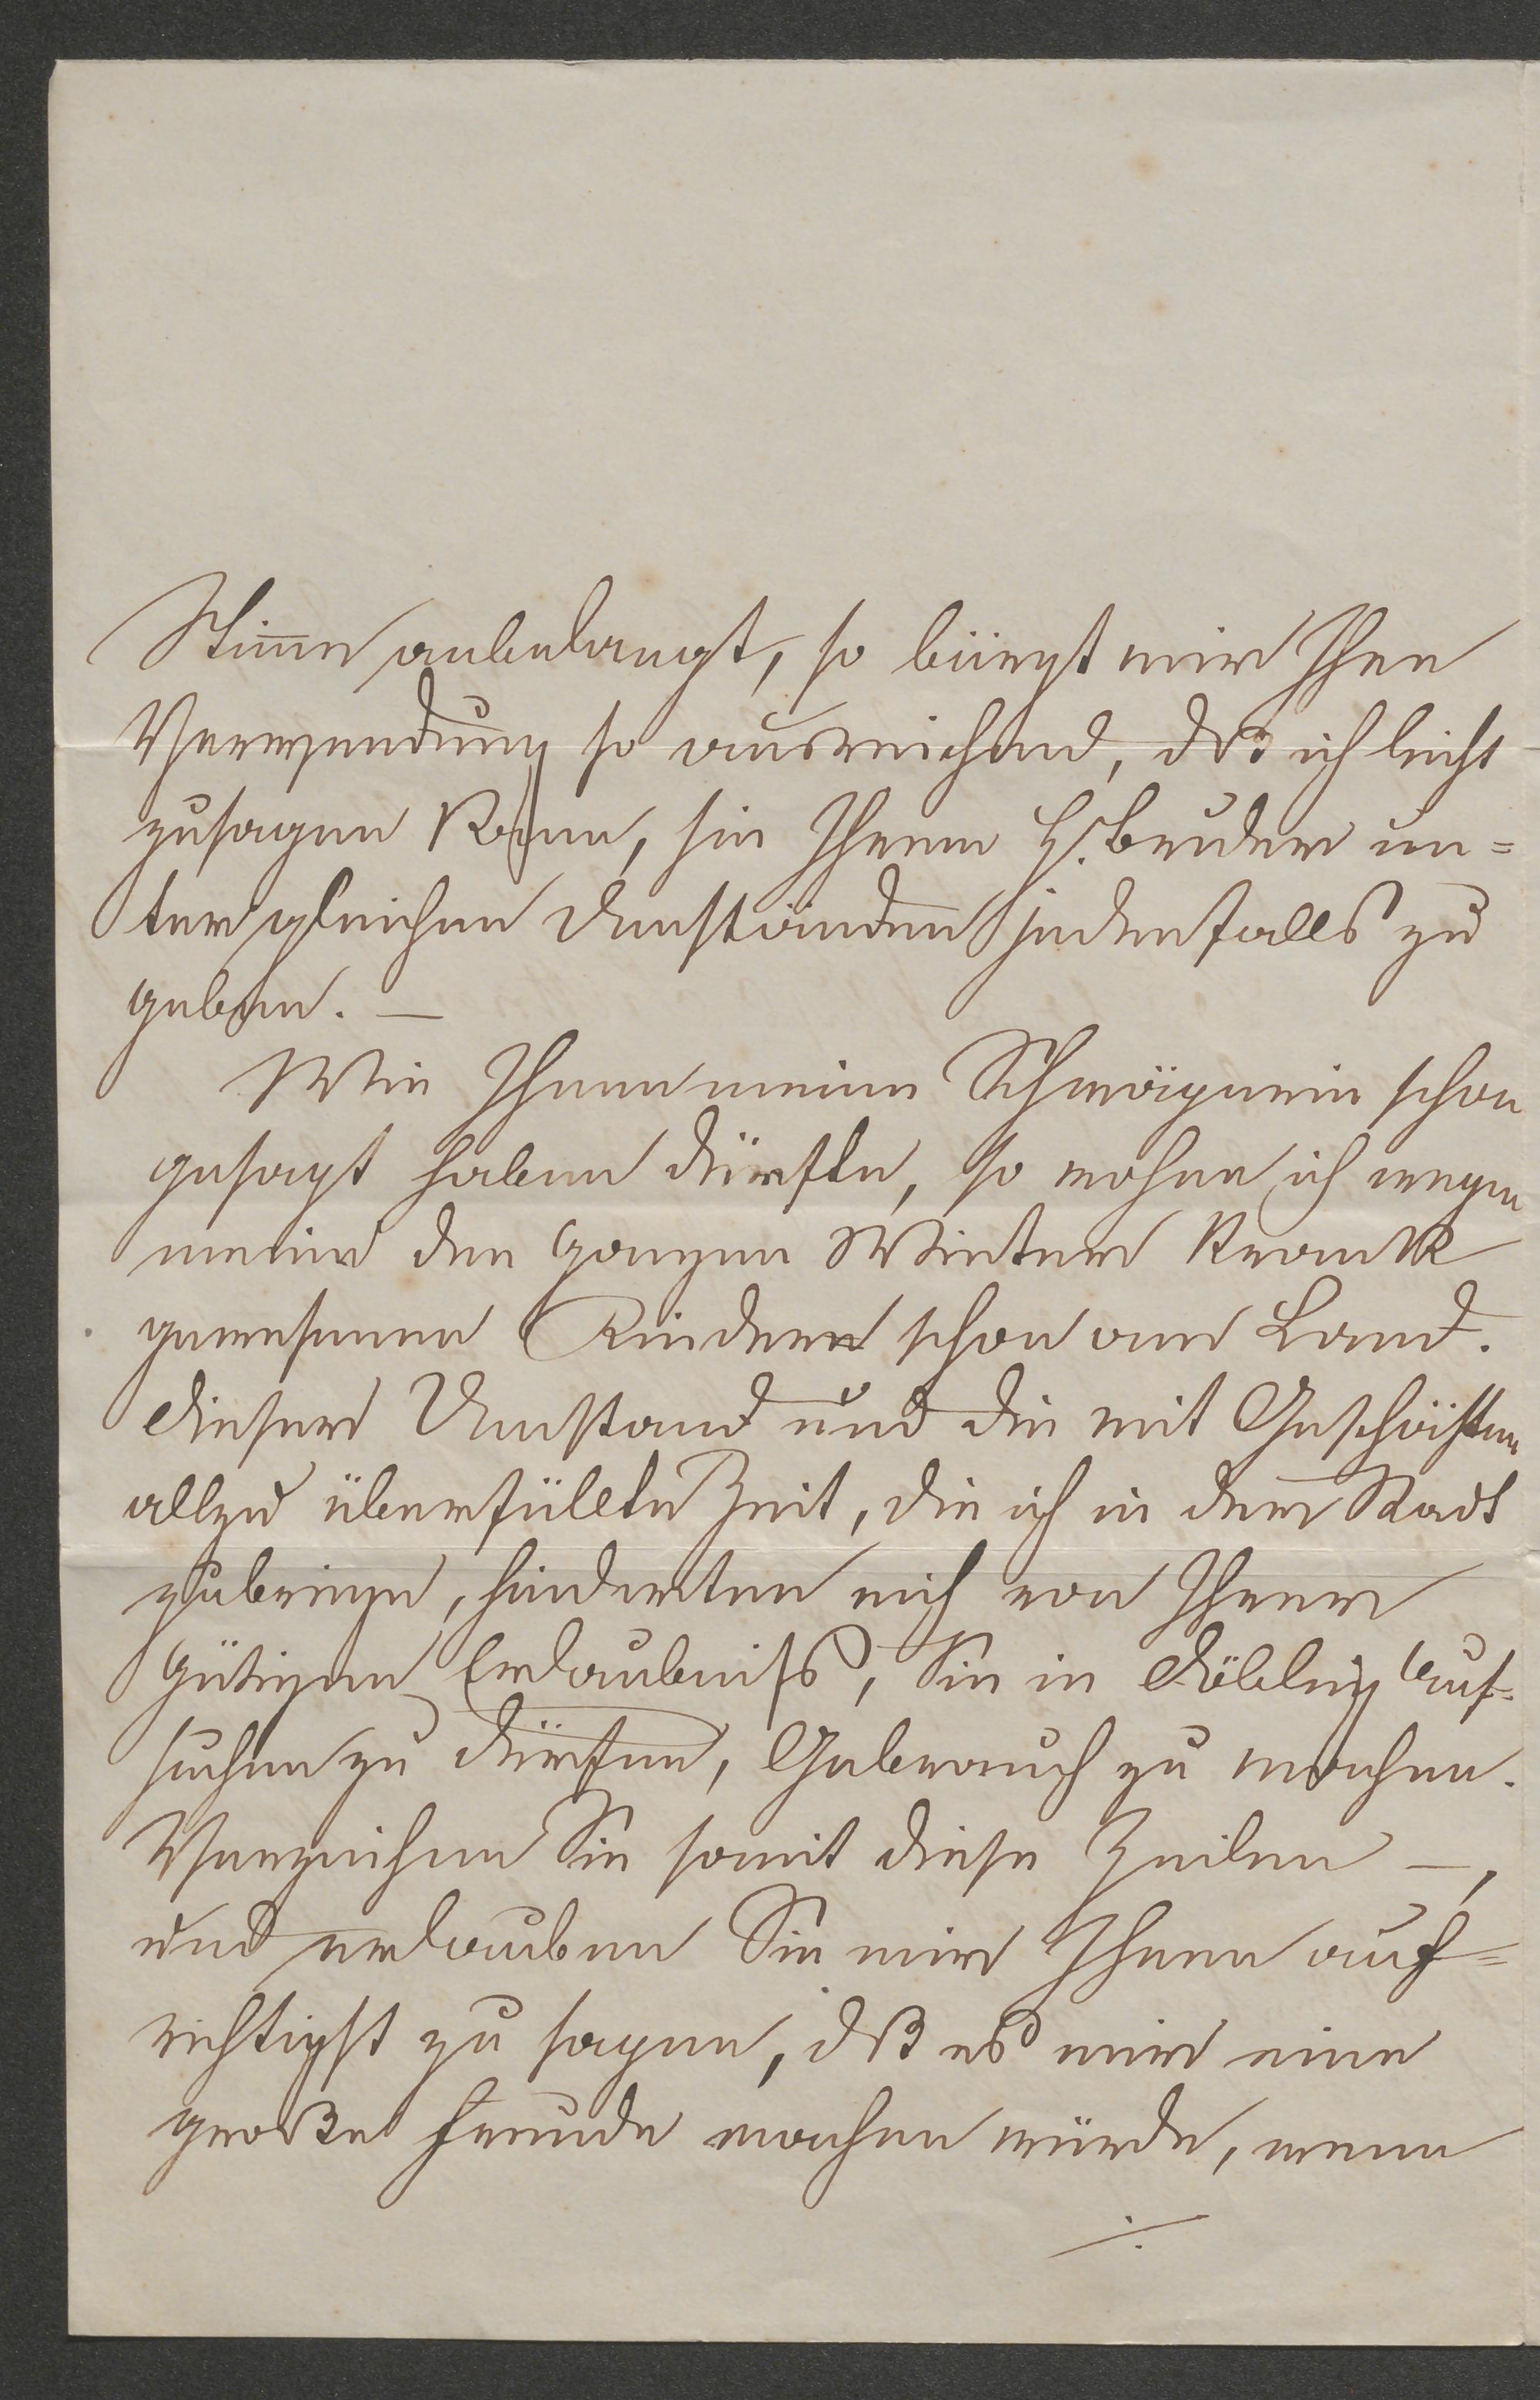 Stim̄e anbelangt, so bürgt mir Ihre
Verwendung so ausreichend, daß ich leicht
zusagen kann, sie Ihrem H. Bruder un=
ter gleichen Umständen jedenfalls zu
geben. —
Wie Ihnen meine Schwägerin schon
gesagt haben dürfte, so wohne ich wegen
meiner den ganzen Winter krank
gewesenen Kinder schon am Land.
Dieser Umstand und die mit Geschäften
allzu überfüllte Zeit, die ich in der Stadt
zubringe, hinderten mich von Ihrer
gütigen Erlaubniß, Sie in Döbling auf-
suchen zu dürfen, Gebrauch zu machen.
Verzeihen Sie somit diese Zeilen —,
und erlauben Sie mir Ihnen auf=
richtigst zu sagen, daß es mir eine
große Freude machen würde, wenn
./.